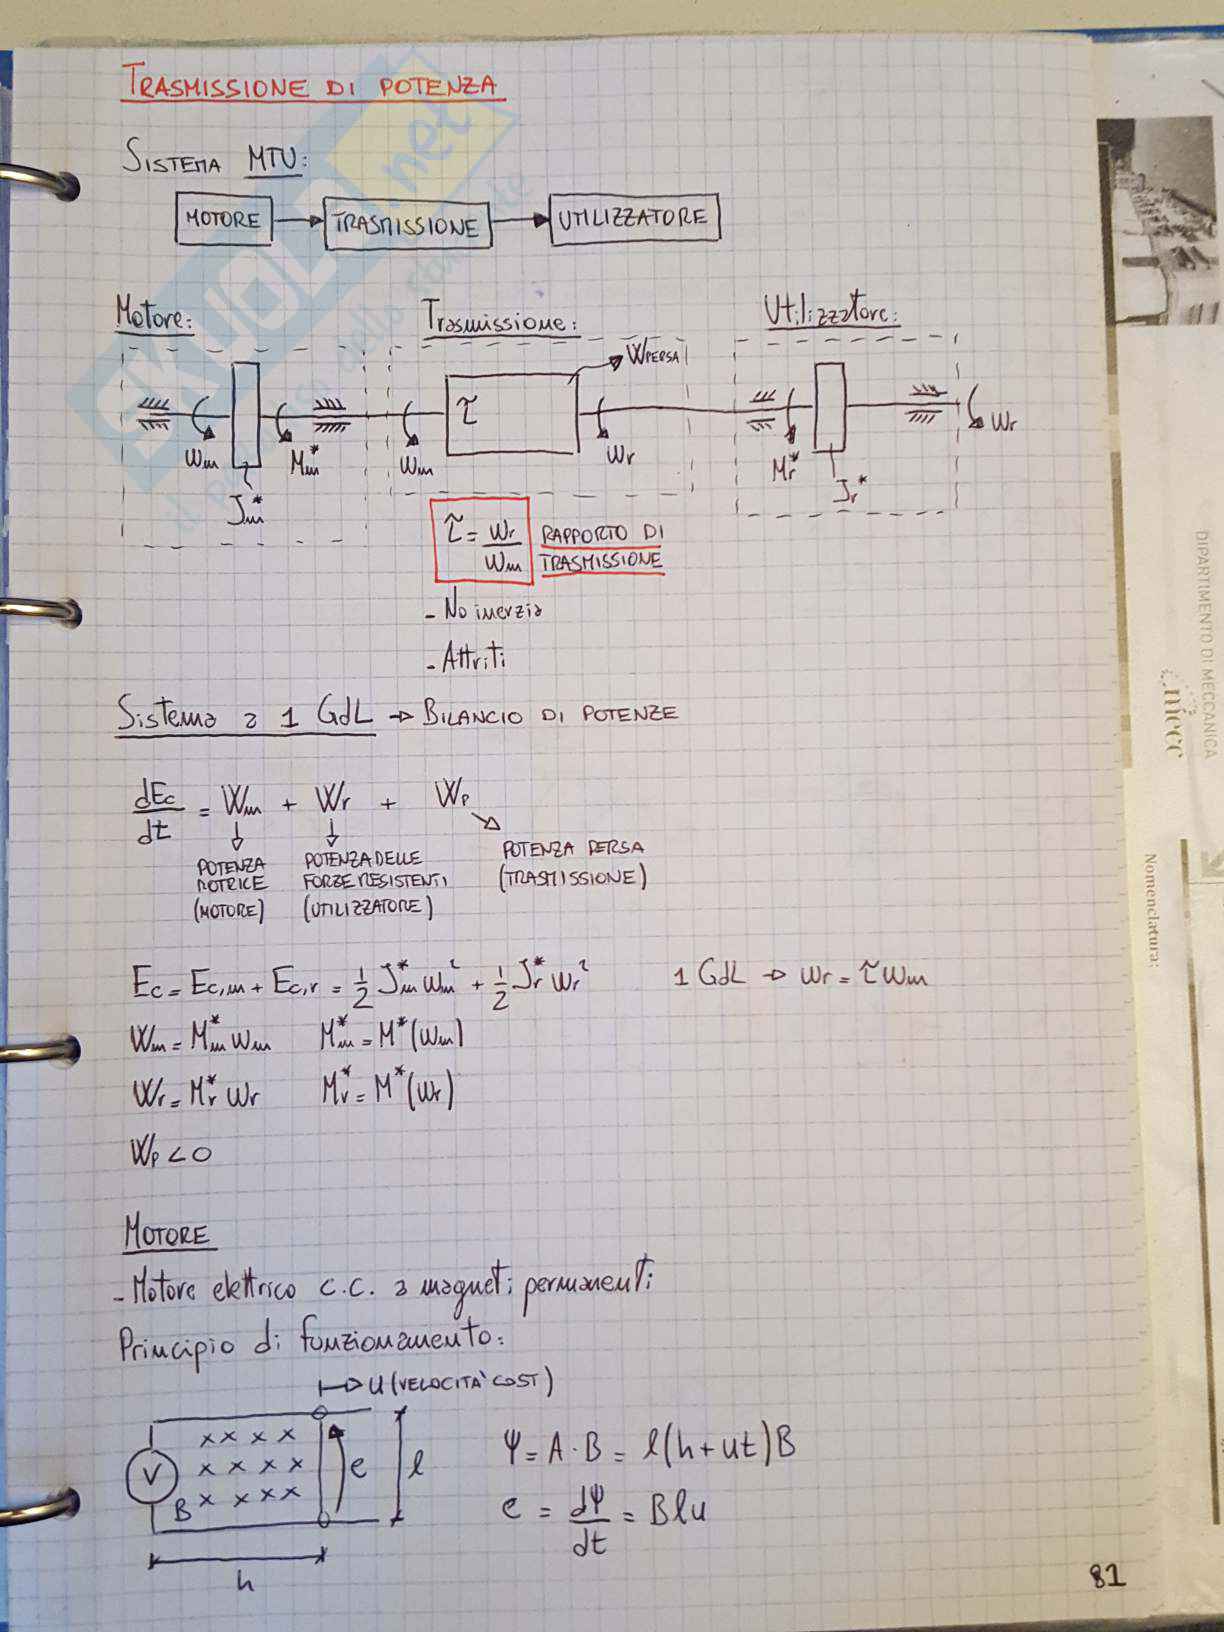 TRASMISSIONE DI POTENZA
SISTEMA MTU:
MOTORE → TRASMISSIONE → UTILIZZATORE
Motore: Trasmissione: Utilizzatore:
WPERSA
τ
ωm Mm* ωm ωr Mr* ωr
Jm* Jr*
τ = ωr/ωm RAPPORTO DI TRASMISSIONE
- No inerzia
- Attriti
Sistema a 1 GdL → BILANCIO DI POTENZE
dEc/dt = Wm + Wr + Wp
POTENZA MOTRICE (MOTORE)
POTENZA DELLE FORZE RESISTENTI (UTILIZZATORE)
POTENZA PERSA (TRASMISSIONE)
Ec = Ec,m + Ec,r = 1/2 Jm* ωm² + 1/2 Jr* ωr² 1 GdL → ωr = τωm
Wm = Mm* ωm Mm* = M*(ωm)
Wr = Mr* ωr Mr* = M*(ωr)
Wp < 0
MOTORE
- Motore elettrico c.c. a magneti permanenti
Principio di funzionamento:
u (VELOCITÀ COST)
x x x x
x x x x
x x x x
V B e l
h
ψ = A · B = l(h + ut)B
e = dψ/dt = Blu
81
SKUOLA.net
DIPARTIMENTO DI MECCANICA
mecc
Nomenclatura: